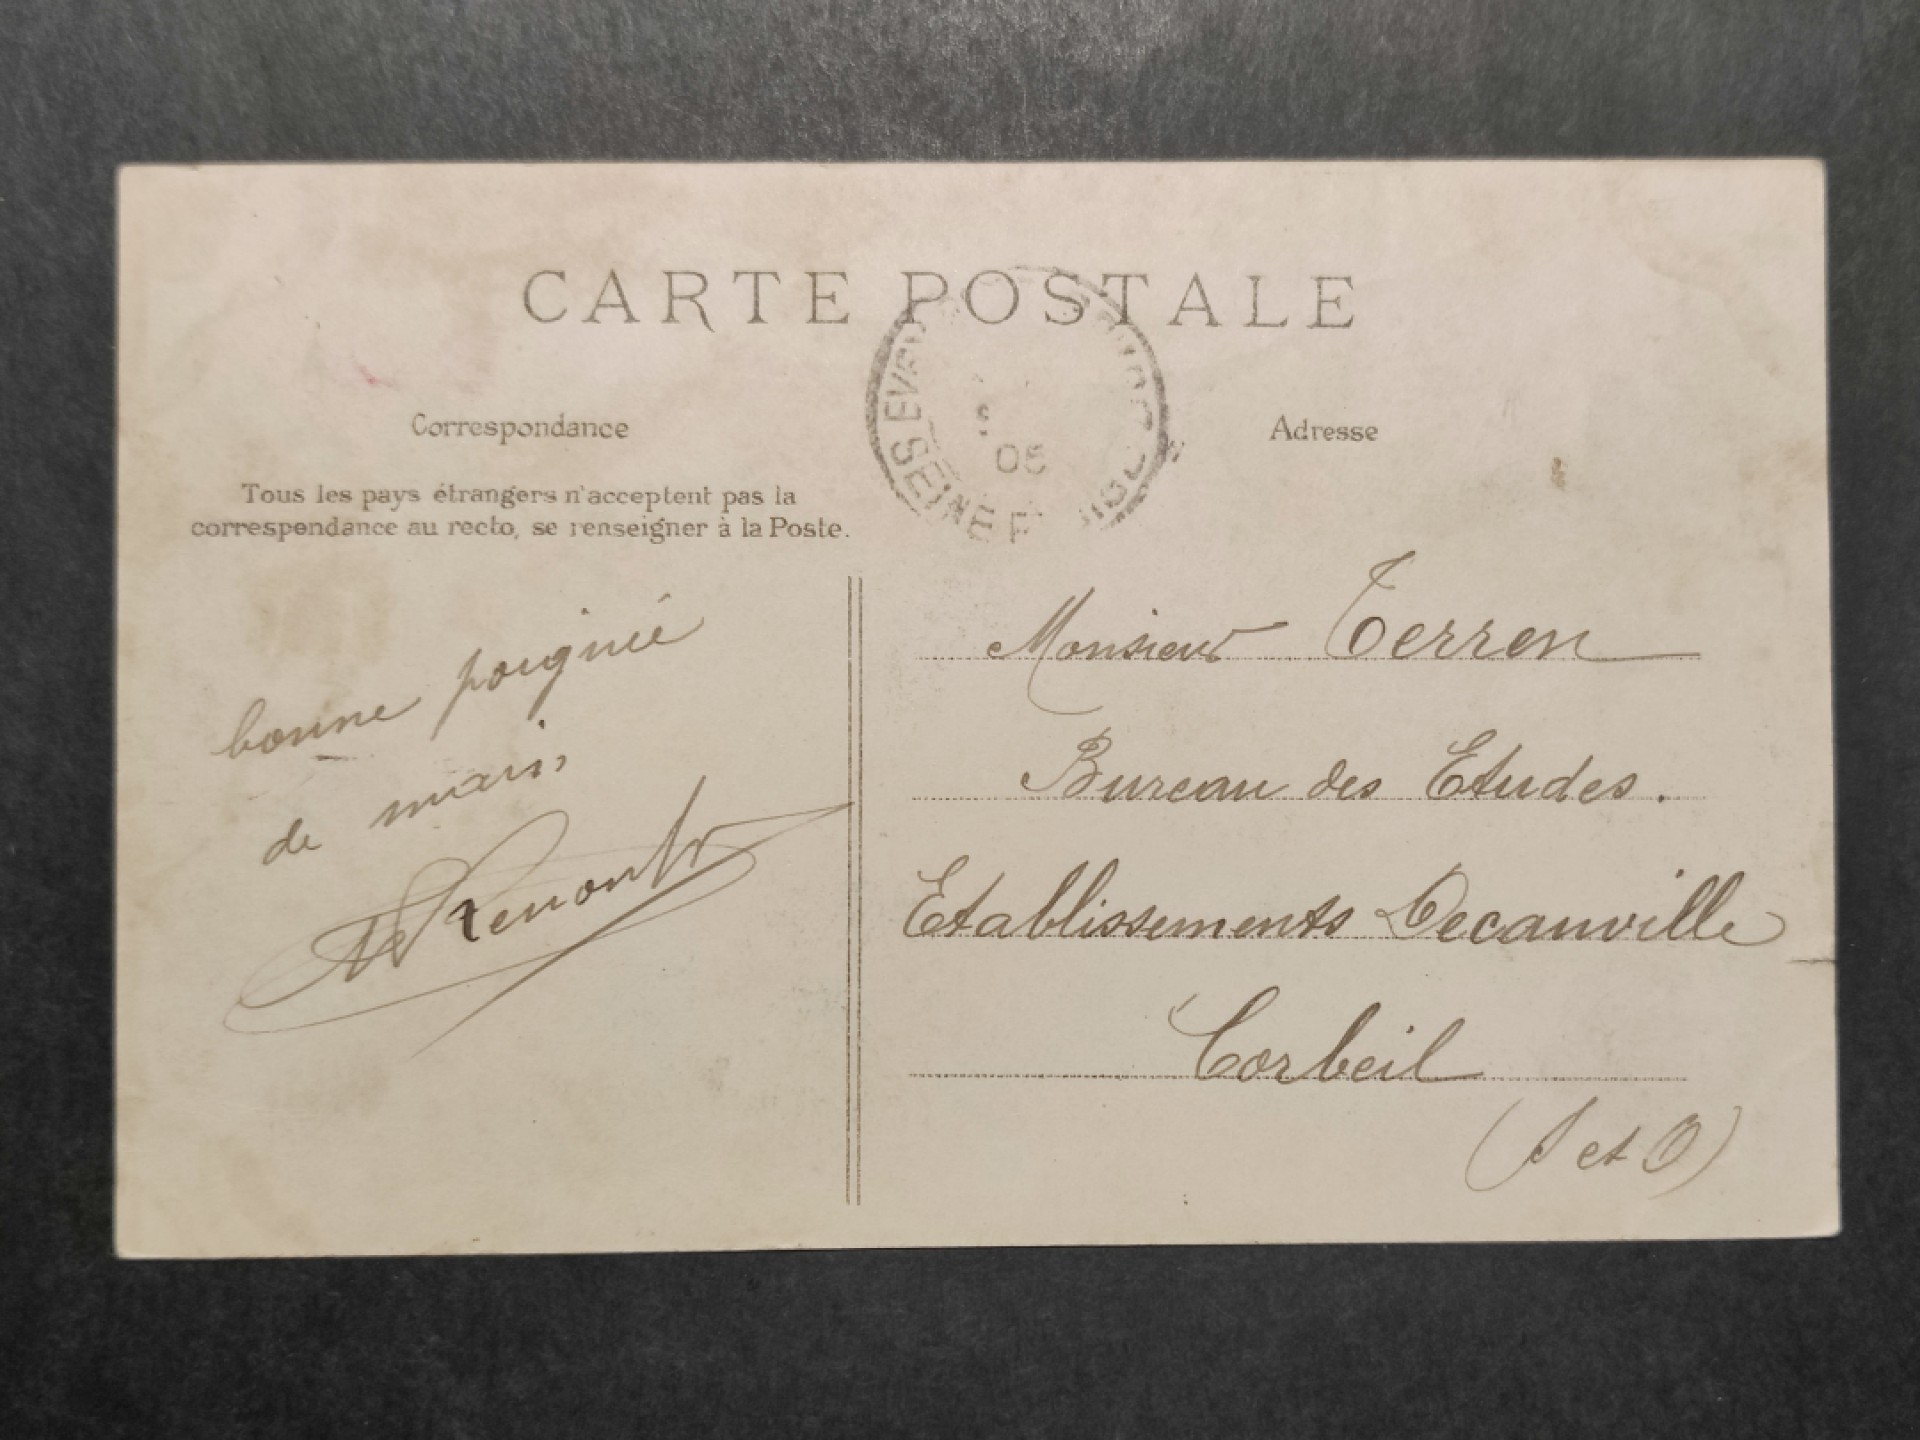 CARTE POSTALE
Correspondance
Tous les pays étrangers n'acceptent pas la
correspondance au recto, se renseigner à la Poste.
bonne poignée
de main
Adresse
05
SEINE ET
Monsieur Terren
Bureau des Etudes.
Etablissements Decauville
Corbeil
(S et O)